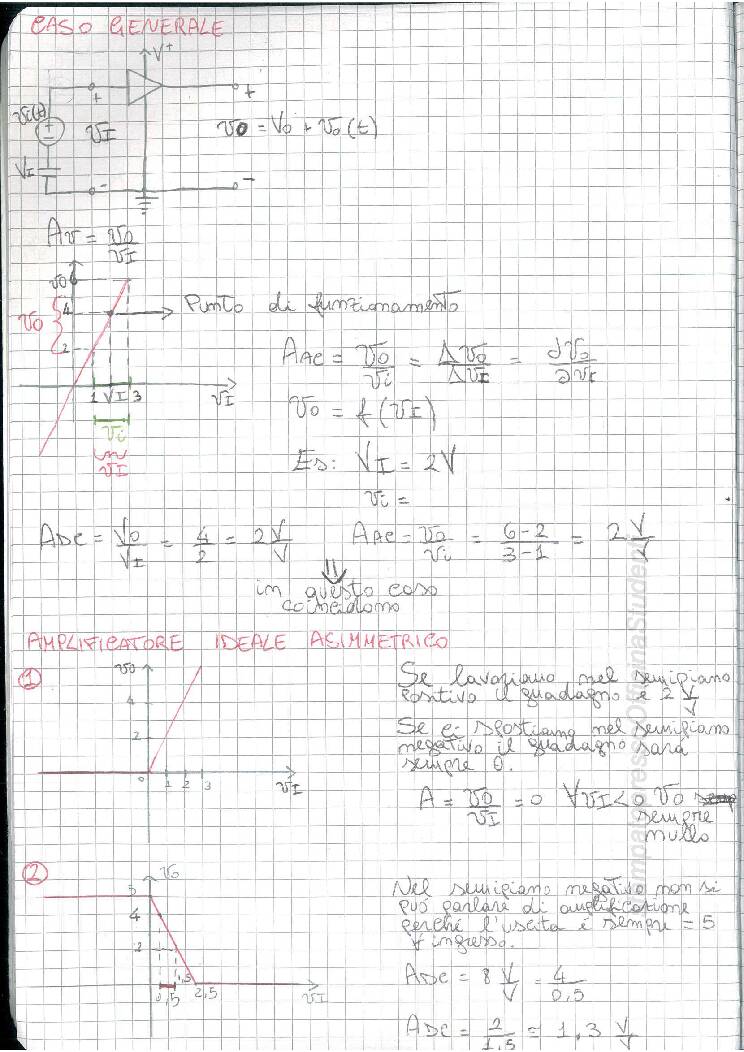 CASO GENERALE
V+
vi(t)
+
+
vI
vO = VO + vo(t)
VI
-
-
Av = vO/vI
vO
vo
4
2
Punto di funzionamento
1 VI 3
vI
vi
vI
AAC = vo/vi = ΔvO/ΔvI = ∂vO/∂vI
vO = f(vI)
Es: VI = 2V
vi =
ADC = VO/VI = 4/2 = 2 V/V
AAC = vo/vi = 6-2/3-1 = 2 V/V
⇓
in questo caso
coincidono
AMPLIFICATORE IDEALE ASIMMETRICO
1
vO
4
2
0
1 2 3
vI
Se lavoriamo nel semipiano
positivo il guadagno è 2 V/V
Se ci spostiamo nel semipiano
negativo il guadagno sarà
sempre 0.
A = vO/vI = 0 ∀vI<0 vO
sempre
nullo
2
vO
5
4
2
1,5
0,5
2,5
vI
Nel semipiano negativo non si
può parlare di amplificazione
perché l'uscita è sempre = 5
∀ ingresso.
ADC = 8 V/V = 4/0,5
ADC = 2/1,5 = 1,3 V/V